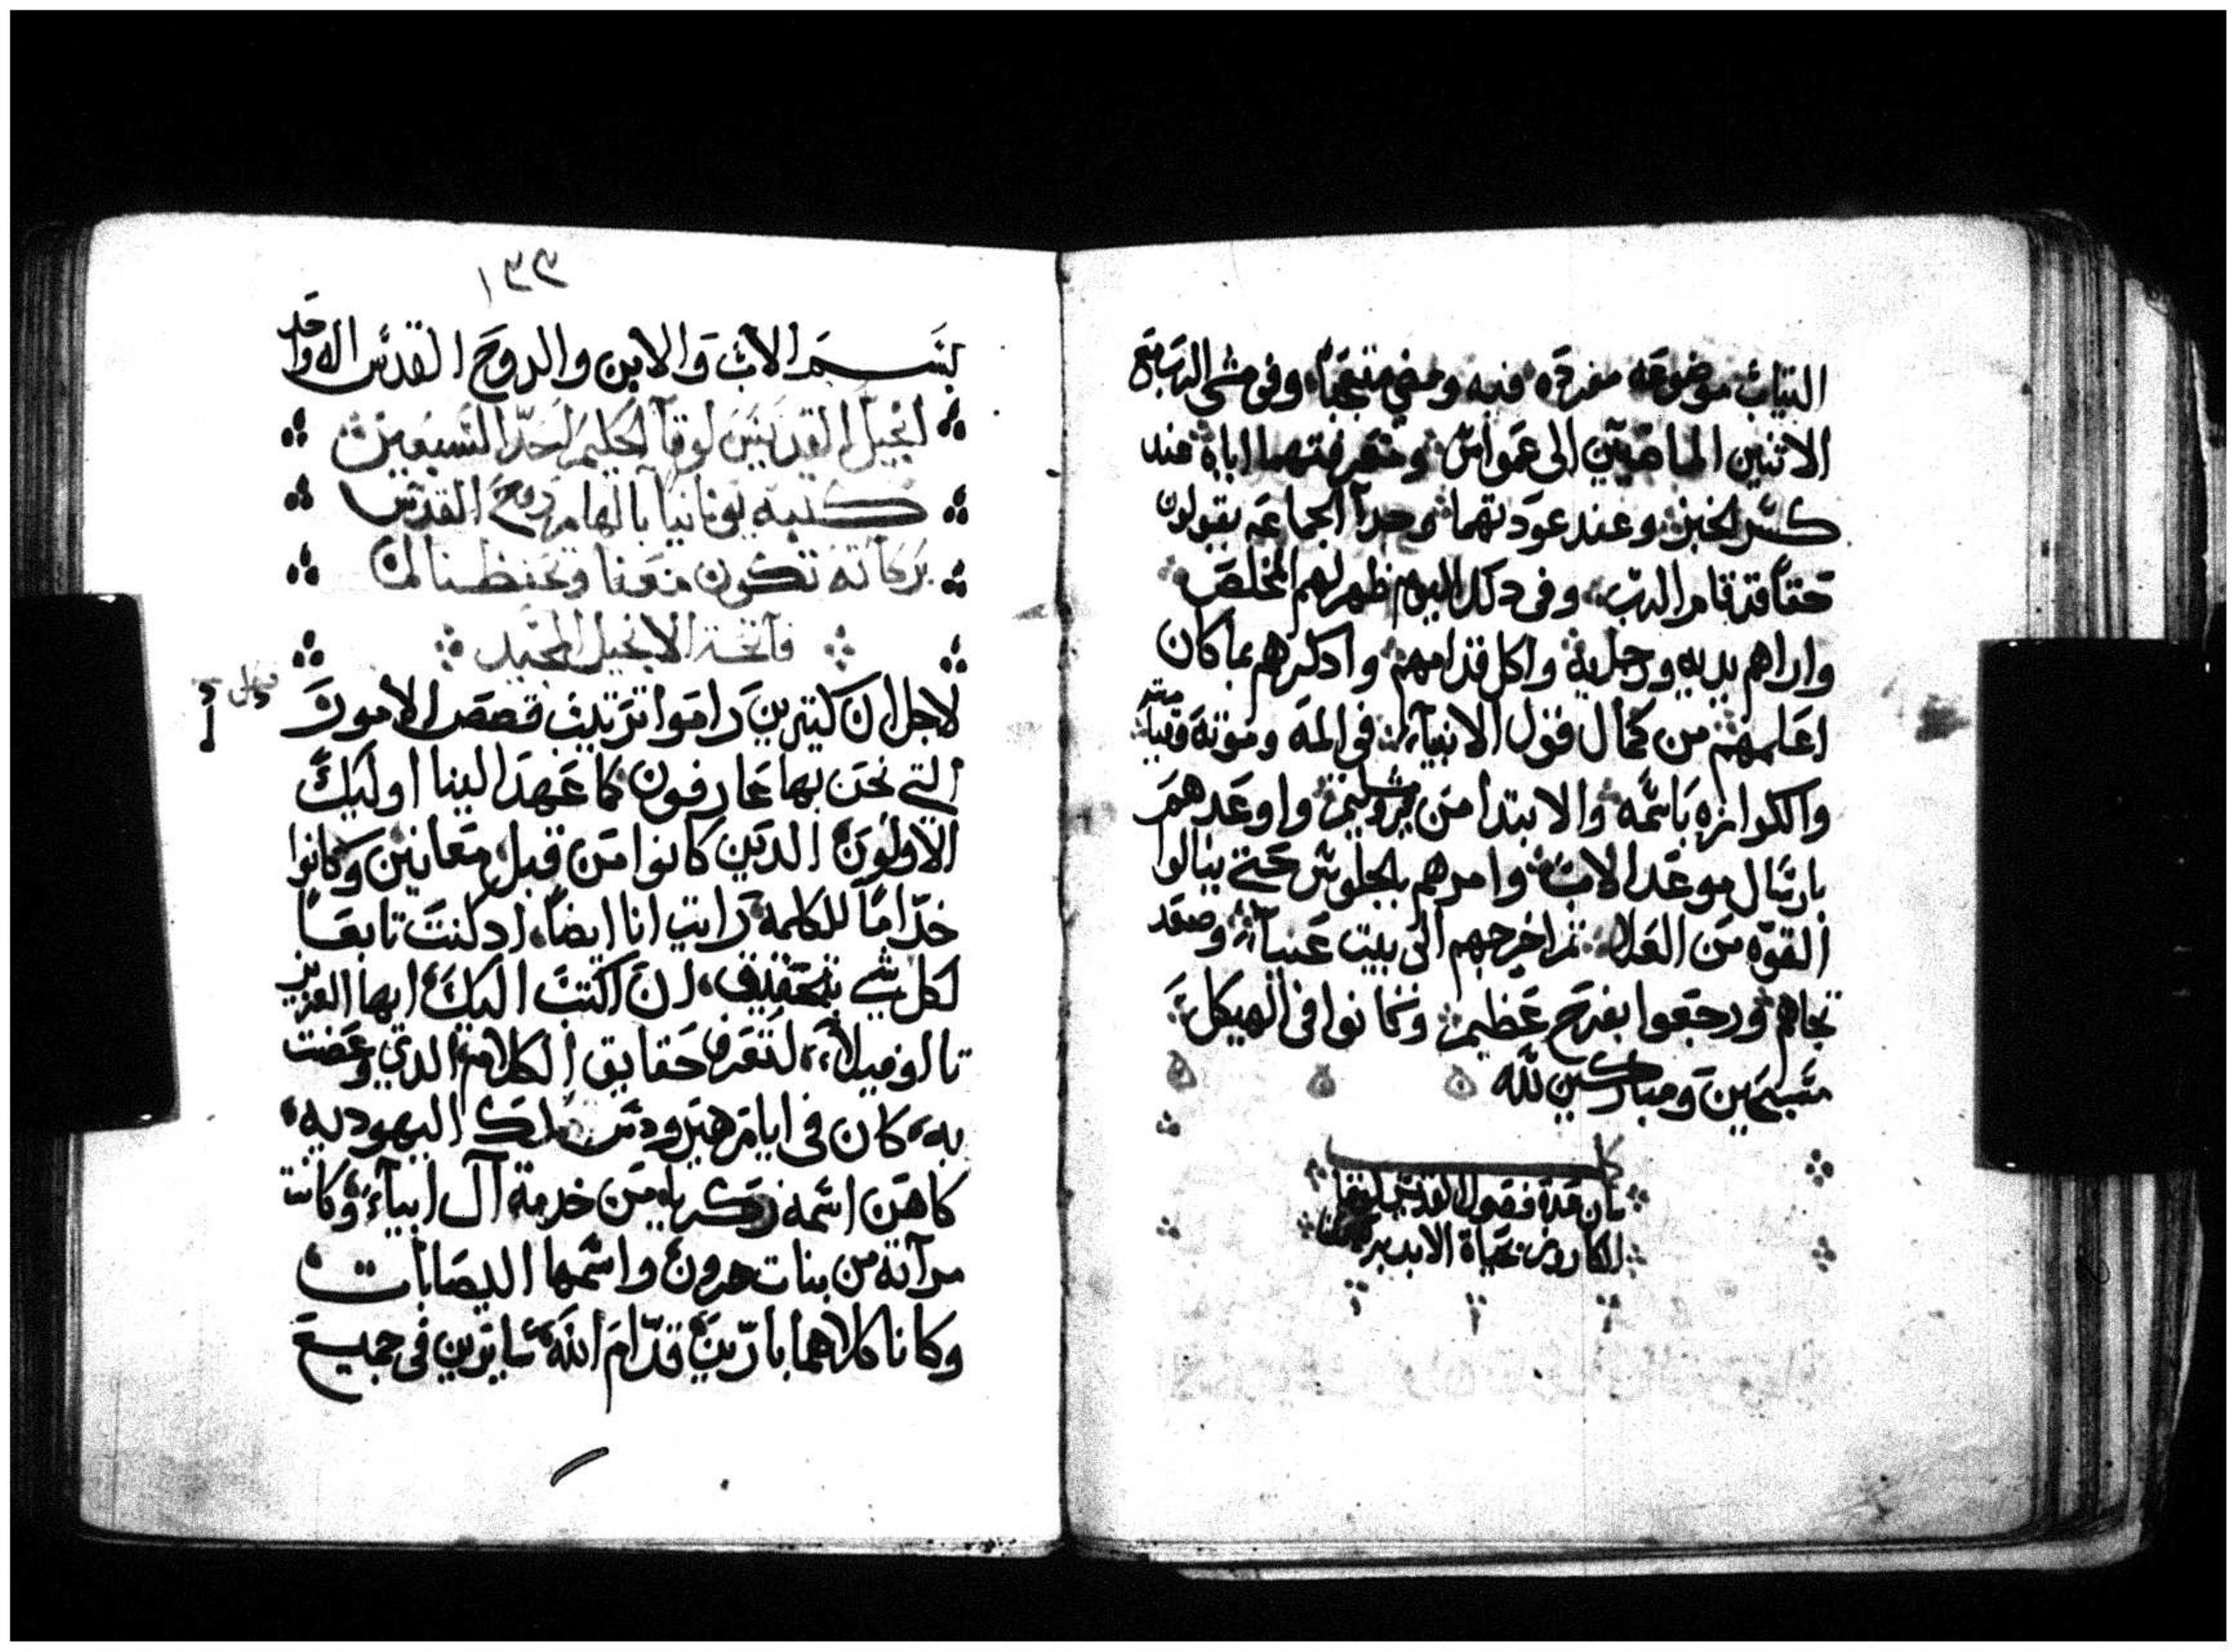 الثياب موضوعه مفرده فيه ومضي متعجبا وفي مشي الرب مع
الاتنين الماضيين الى عمواس ومعرفتهما اياه عند
كسر الخبز وعند عودتهما وجدا الجماعه يقولون
حقا قد قام الرب وفي دلك اليوم ظهر لهم المخلص
واراهم يديه ورجليه واكل قدامهم وادكرهم بما كان
اعلمهم من كمال قول الانبيآء في المه وموته وقيامته
والكرازه باسمه والابتدا من يروشليم واوعدهم
بارسال موعد الاب وامرهم بالجلوس حتي ينالوا
القوه من العلا ثم اخرجهم الى بيت عنيا وصعد
تجاههم ورجعوا بفرح عظيم وكانوا في الهيكل
مسبحين ومباركين لله
الابد
١٣٣
بسم الاب والابن والروح القدس اله واحد
انجيل القديس لوقا الحكيم احد السبعين
كتبه يونانيا بالهام روح القدس
بركاته تكون معنا وتحفظنا امين
فاتحة الانجيل المجيد
لاجل ان كتيرين راموا ترتيب قصص الامور
التي نحن بها عارفون كما عهد الينا اوليك
الاولون الدين كانوا من قبل معاينين وكانوا
خداما للكلمه رايت انا ايضا اد كنت تابعا
لكل شي بتحقيق ان اكتب اليك ايها العزيز
تاوفيلا لتعرف حقايق الكلام الدي وعضت
به كان في ايام هيرودس ملك اليهوديه
كاهن اسمه زكريا من خدمة آل ابيآء وكانت
مرآته من بنات هرون واسمها اليصابات
وكانا كلاهما بارين قدام الله سايرين في جميع